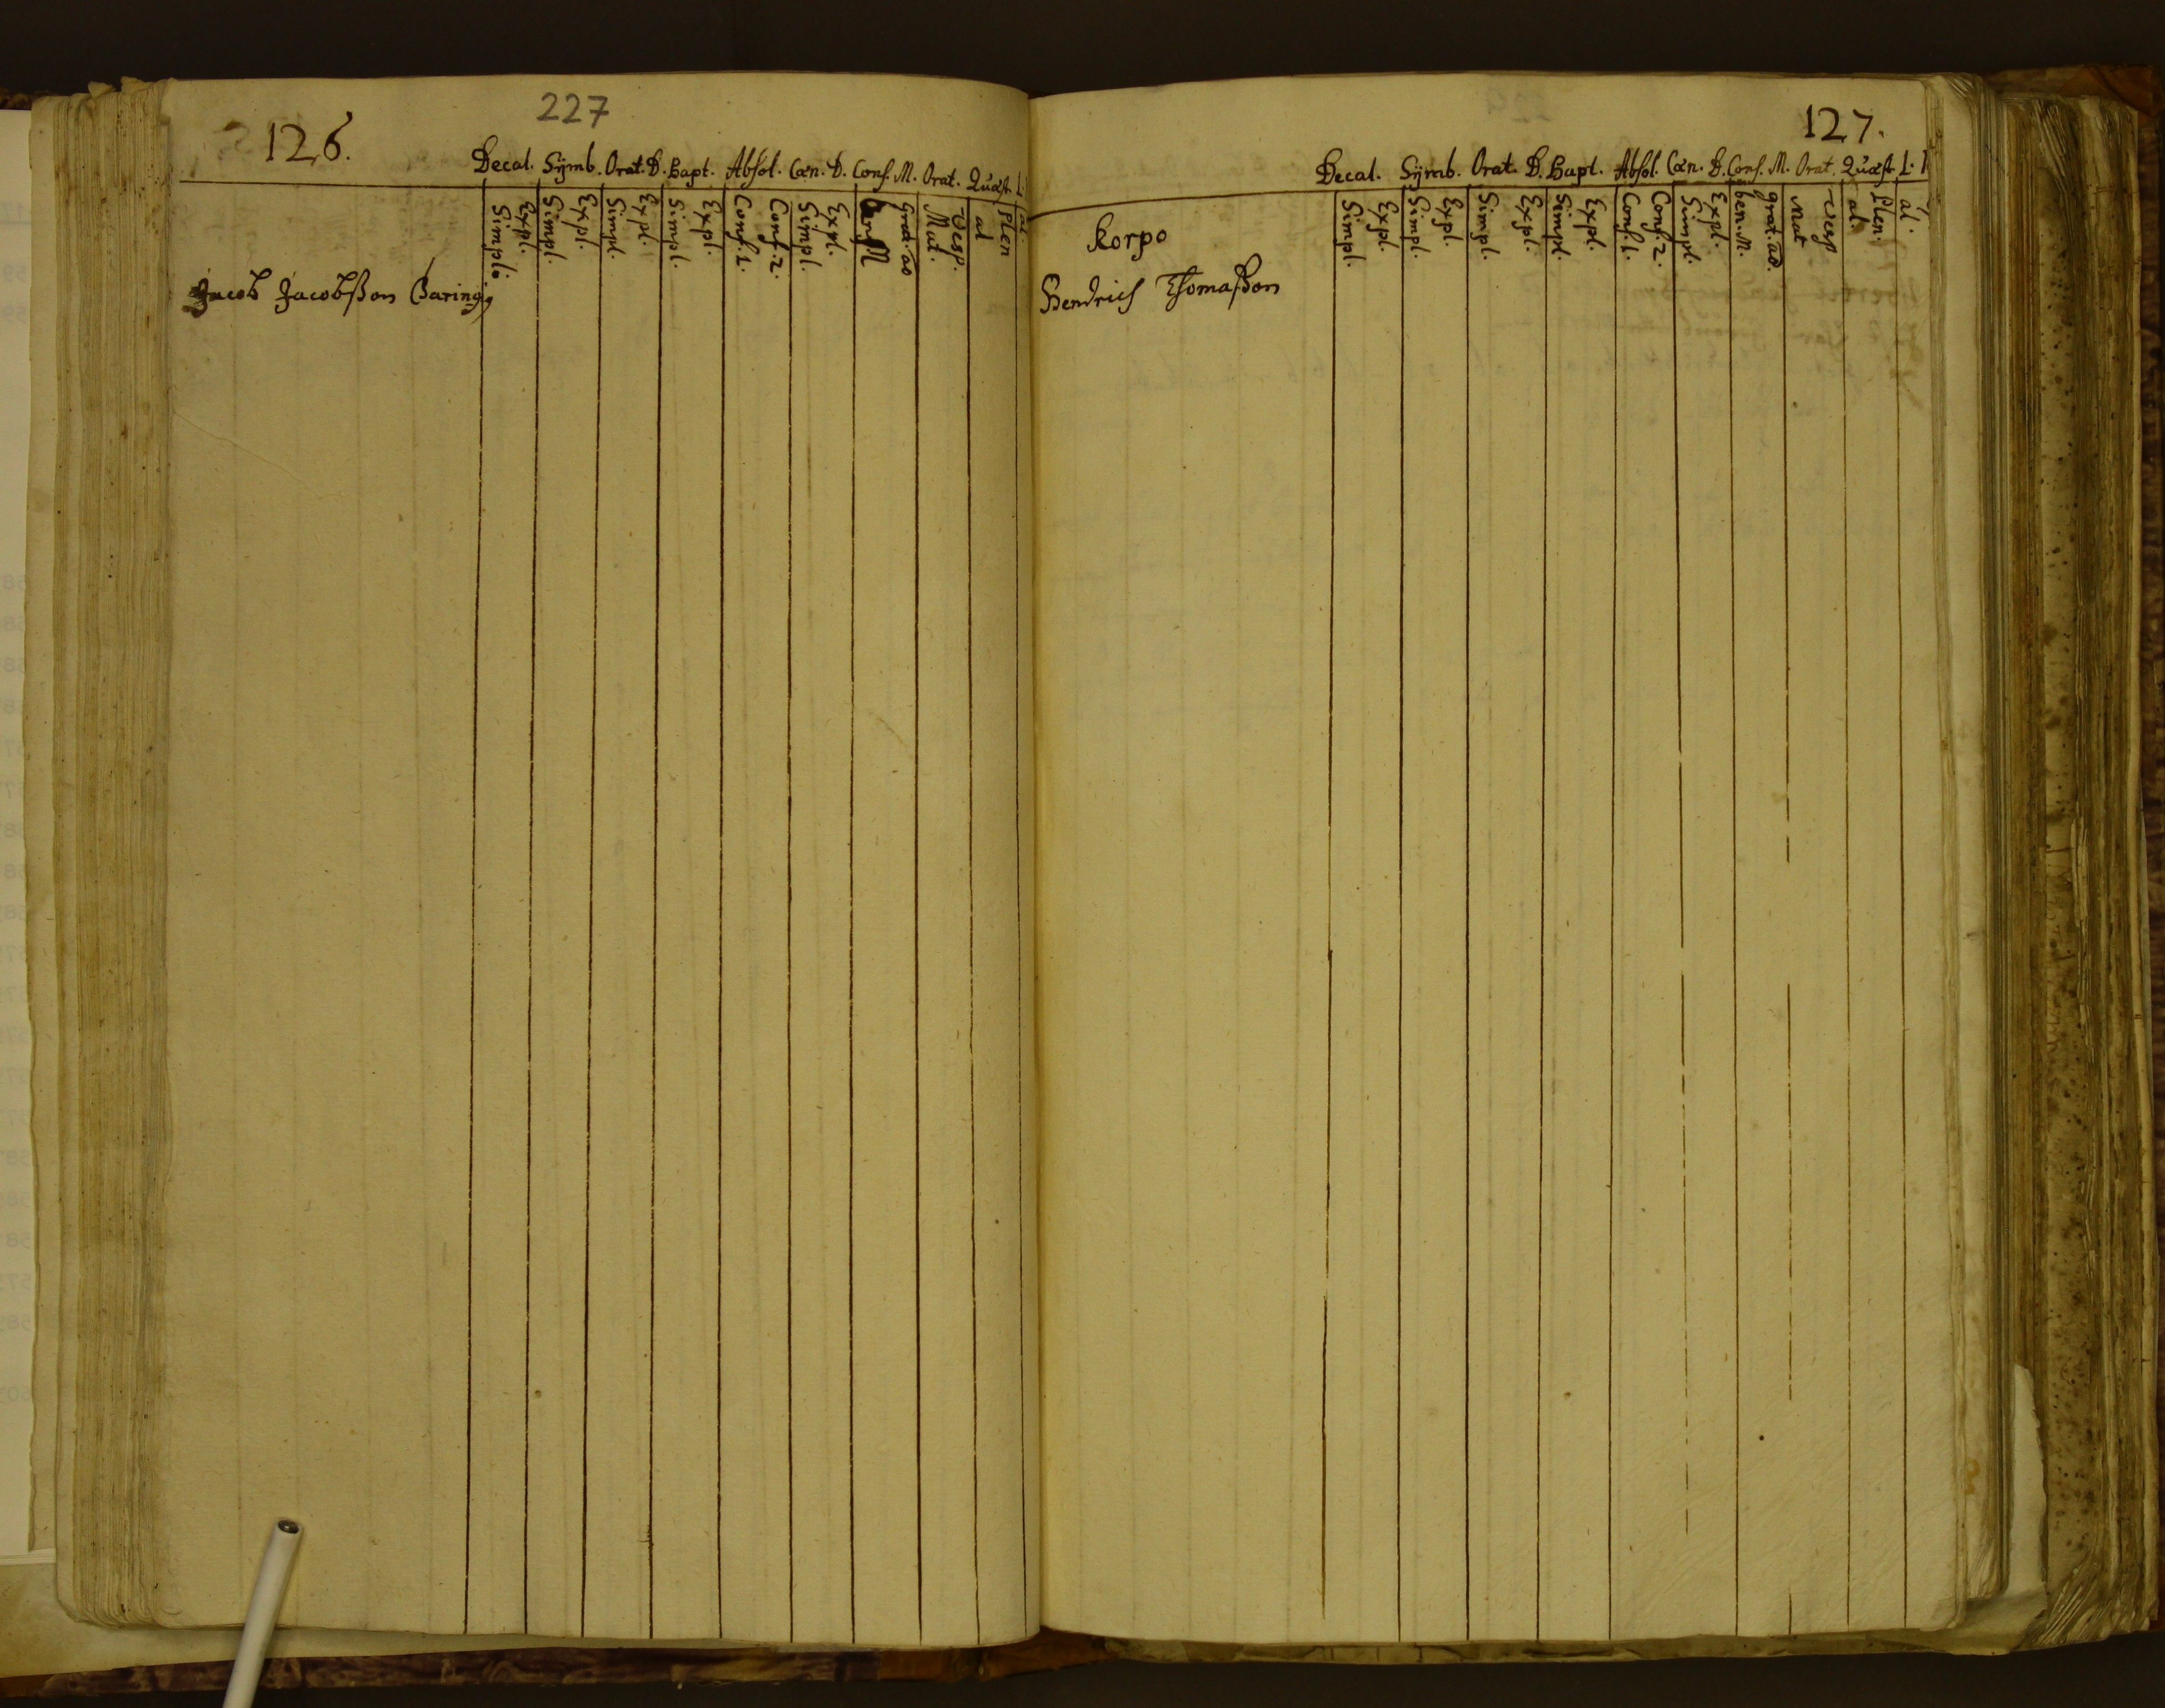 227
126.
Decal. Symb. Orat. D. Bapt. Absol. Cœn. D. Conf. M. Orat. Quæst. L.
Simpl. Expl. Simpl. Expl. Simpl. Expl. Simpl. Expl. Conf. 1. Conf. 2. Simpl. Expl. Grat. ac Mat. Vesp. al Plen al.
Jacob Jacobsson Caring
127.
Decal. Symb. Orat. D. Bapt. Absol. Cœn. D. Conf. M. Orat. Quæst. L. I
Simpl. Expl. Simpl. Expl. Simpl. Expl. Simpl. Expl. Conf. 1. Conf. 2. Simpl. Expl. ben. M. grat. ac. Mat Vesp al. Plen. al.
Korpo
Hendrich Thomasson